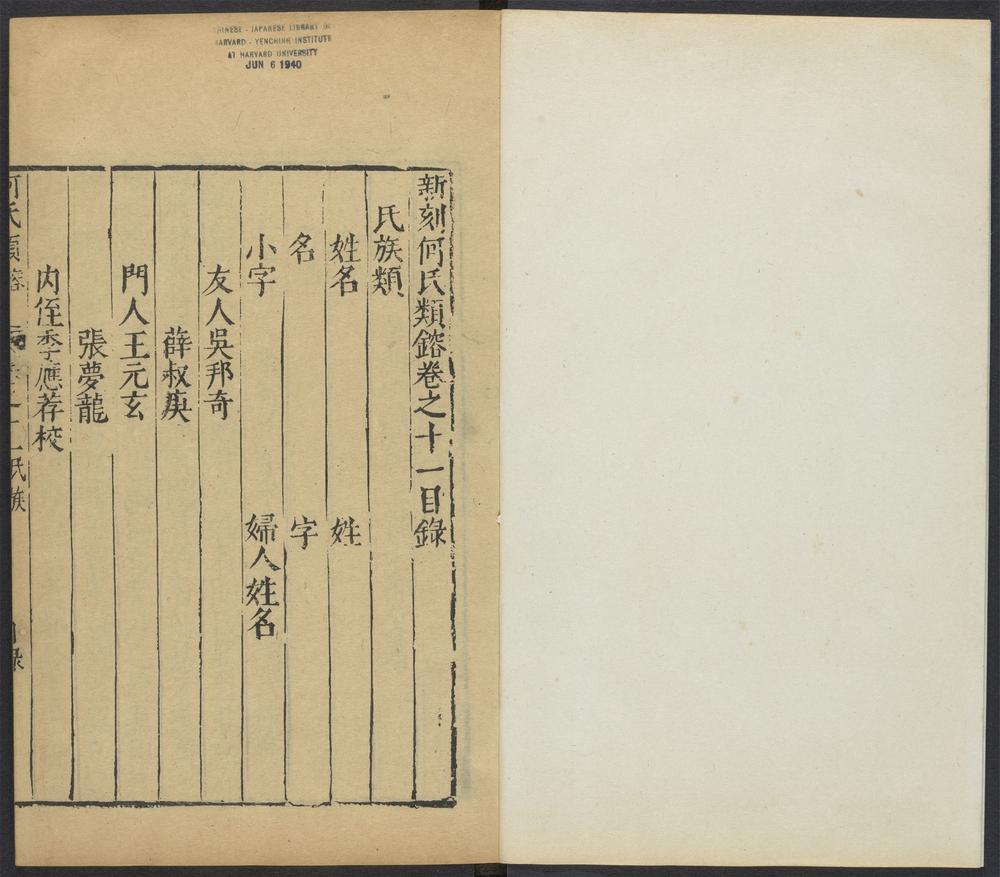 CHINESE - JAPANESE LIBRARY OF
HARVARD - YENCHING INSTITUTE
AT HARVARD UNIVERSITY
JUN 6 1940
新刻何氏類鎔卷之十一目錄
氏族類
姓名 姓
名 字
小字 婦人姓名
友人吳邦奇
薛叔庚
門人王元玄
張夢龍
内侄季應荐校
何氏類鎔 十一氏族 目錄